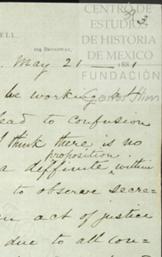 CENTRO DE
ESTUDIOS
DE HISTORIA
DE MEXICO
FUNDACIÓN
3.
ELL.
Broadway,
May 21 1881
be working at
ead to confusion
I think there is no
proposition
a diffinite, within
to observe secre-
an act of justice
due to all con-